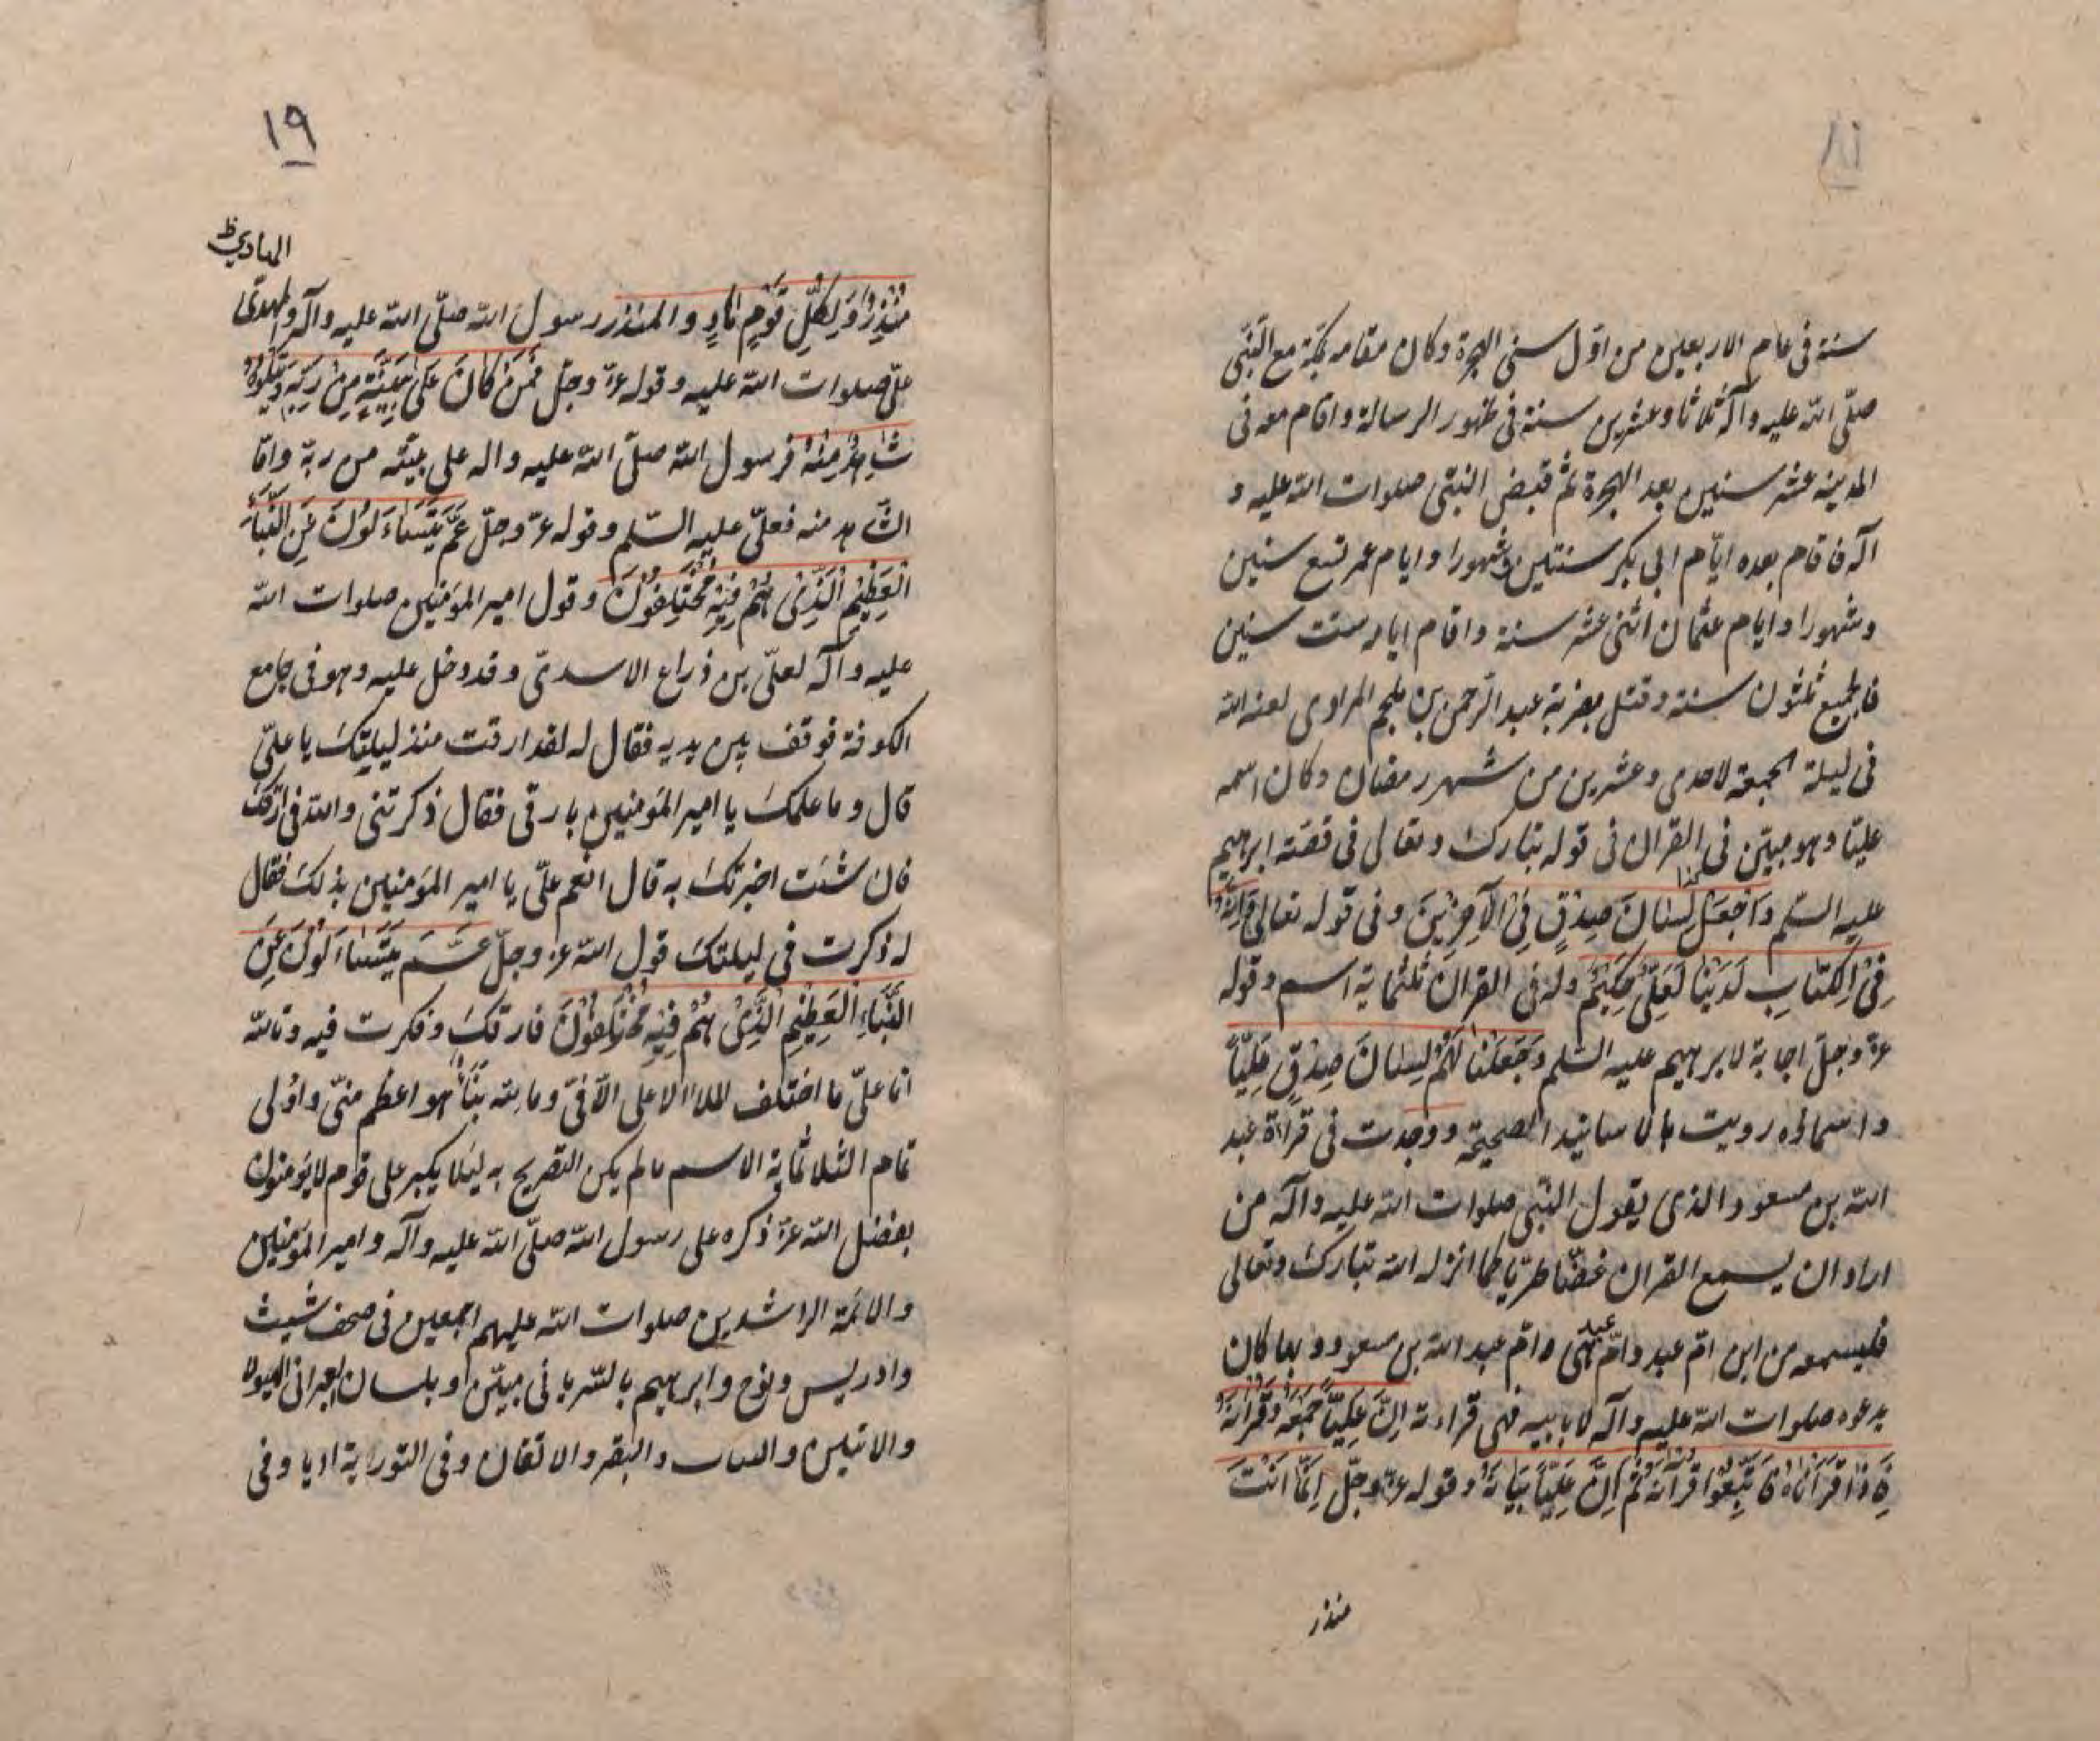 ١٨
سنة فى عام الاربعين من اوّل سنى الهجرة وكان مقامه بمكّة مع النّبى
صلّى اللّه عليه وآله ثلاثا وعشرين سنة فى ظهور الرسالة واقام معه فى
المدينه عشر سنين بعد الهجرة ثم قبض النبّى صلوات اللّه عليه و
آله فاقام بعده ايّام ابى بكر سنتين وشهورا وايام عمر تسع سنين
وشهورا وايام عثمان اثنى عشر سنة واقام ايامه ست سنين
فالجميع ثلثون سنة وقتل بضربة عبد الرّحمن بن ملجم المرادى لعنه اللّه
فى ليلة الجمعة لاحدى وعشرين من شهر رمضان وكان اسمه
عليّا وهو مبيّن فى القران فى قوله تبارك وتعالى فى قصّة ابرهيم
عليه السّلم وَاجْعَلْ لِسٰانَ صِدْقٍ فِى الْآخِرِيْنَ وفى قوله تعالى وَاِنَّهُ
فِىْ اِلْكِتٰابِ لَدَيْنٰا لَعَلِىٌّ حَكِيْمٌ وله فى القران ثلثماية اسم وقوله
عزّ وجلّ اجابة لابرهيم عليه السّلم وَجَعَلْنٰا لَهُمْ لِسٰانَ صِدْقٍ عَلِيّاً
واسماؤه رويت بالاسانيد الصحيحة ووجدت فى قراءة عبد
اللّه بن مسعود الذى يقول النبّى صلوات اللّه عليه وآله من
اراد ان يسمع القران غضّا طريّا كما انزله اللّه تبارك وتعالى
فليسمعه من ابن امّ عبد وامّ عبد هى وامّ عبد اللّه بن مسعود وبها كان
يدعوه صلوات اللّه عليه وآله لا بابيه فهى قراءته اِنَّ عَلِيّاً جَمْعَهُ وَقُرْآنَهُ
فَاِذٰا قَرَأْنٰاهُ فَاتَّبِعْوا قُرْآنَهُ ثُمَّ اِنَّ عَلِيّاً بَيٰانَهُ وقوله عزّ وجلّ اِنَّمٰا اَنْتَ
منذر
١٩
الهادي ظ
مُنْذِرٌ وَلِكُلِّ قَوْمٍ هٰادٍ والمنذر رسول اللّه صلّى اللّه عليه وآله والمهدى
علىّ صلوات اللّه عليه وقوله عزّ وجلّ فَمَنْ كٰانَ عَلىٰ بَيِّنَةٍ مِنْ رَبِّهِ وَيَتْلُوهُ
شٰاهِدٌ مِنْهُ فرسول اللّه صلّى اللّه عليه واله على بيّنة من ربّه وامّا
الشّاهد منه فعلىّ عليه السّلم وقوله عزّ وجلّ عَمَّ يَتَسٰاءَلُوْنَ عَنِ النَّبَأِ
الْعَظِيْمِ الَّذِىْ هُمْ فِيْهِ مُخْتَلِفُوْنَ وقول امير المؤمنين صلوات اللّه
عليه وآله لعلىّ بن ذراع الاسدىّ وقد دخل عليه وهو فى جامع
الكوفة فوقف بين يديه فقال له لقد ارقت منذ ليلتك يا علىّ
قال وما علمك يا امير المؤمنين بارقى فقال ذكرتنى واللّه فى ارقك
فان شئت اخبرتك به قال انعم علىّ يا امير المؤمنين بذلك فقال
له ذكرت فى ليلتك قول اللّه عزّ وجلّ عَمَّ يَتَسٰاءَلُوْنَ عَنِ
النَّبَاءِ الْعَظِيْمِ الَّذِىْ هُمْ فِيْهِ مُخْتَلِفُوْنَ فارقك وفكرت فيه وتاللّه
انا علىّ ما اختلف الملاء الا على الّا فىّ وما للّه نَبَأٌ هو اعظم منّى واوْلى
تمام الثلاثماية الاسم ما لم يكن التصريح به ليلا يكبر على قوم لا يؤمنون
بفضل اللّه عزّ ذكره على رسول اللّه صلّى اللّه عليه وآله وامير المؤمنين
والائمّة الراشدين صلوات اللّه عليهم اجمعين فى صحف شيث
وادريس ونوح وابرهيم بالسّريانى مبيّن او بلسان العبرانى الهيولا
والاتيلين و والبقر والاتقان وفى التوراية اديا وفى